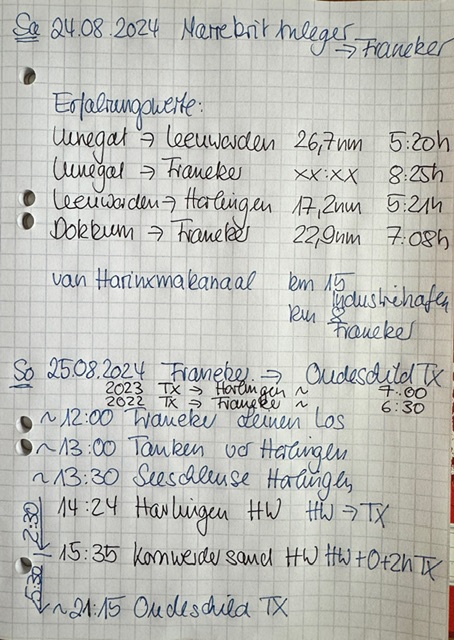 Sa 24.08.2024 Marrebrit Anleger
→ Franeker
Erfahrungswerte:
Lunegat → Leeuwarden 26,7nm 5:20h
Lunegat → Franeker xx:xx 8:25h
Leeuwarden → Harlingen 17,2nm 5:21h
Dokkum → Franeker 22,9nm 7:08h
van Harinxmakanaal km 15
Industriehafen
km 8
Franeker
So 25.08.2024 Franeker → Oudeschild TX
2023 TX → Harlingen ~ 7:00
2022 TX → Franeker ~ 6:30
~ 12:00 Franeker Leinen los
~ 13:00 Tanken vor Harlingen
~ 13:30 Seeschleuse Harlingen
14:24 Harlingen HW HW → TX
2:30
15:35 Kornwerdersand HW HW+0+2h TX
5:30
~ 21:15 Oudeschild TX